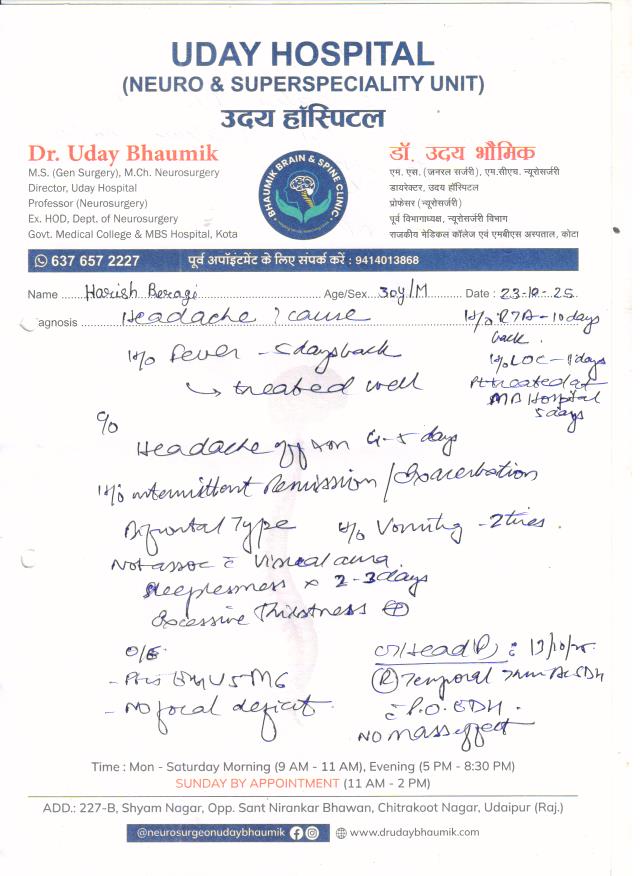 UDAY HOSPITAL
(NEURO & SUPERSPECIALITY UNIT)
उदय हॉस्पिटल
Dr. Uday Bhaumik
M.S. (Gen Surgery), M.Ch. Neurosurgery
Director, Uday Hospital
Professor (Neurosurgery)
Ex. HOD, Dept. of Neurosurgery
Govt. Medical College & MBS Hospital, Kota
BHAUMIK BRAIN & SPINE CLINIC
डॉ. उदय भौमिक
एम. एस. (जनरल सर्जरी), एम.सीएच. न्यूरोसर्जरी
डायरेक्टर, उदय हॉस्पिटल
प्रोफेसर (न्यूरोसर्जरी)
पूर्व विभागाध्यक्ष, न्यूरोसर्जरी विभाग
राजकीय मेडिकल कॉलेज एवं एमबीएस अस्पताल, कोटा
637 657 2227 पूर्व अपॉइंटमेंट के लिए संपर्क करें : 9414013868
Name Harish Beragi Age/Sex 30y/M Date : 23-10-25
agnosis Headache ? cause
H/o RTA - 10 days
back.
H/o LOC - 1 days
Pt treated at
MB Hospital
5 days
H/o Fever - 5 days back
→ treated well
C/o
Headache off & on 4-5 days
H/o intermittent Remission / Exacerbation
Bifrontal Type H/o Vomiting - 2 times.
Not assoc c̄ Visual aura
Sleeplessness x 2-3 days
Excessive Thirstness ⊕
O/E
E4V5M6
- No focal deficit
CT Head (P) : 13/10/25
(R) Temporal
c̄ P.O. EDH.
No mass effect
Time : Mon - Saturday Morning (9 AM - 11 AM), Evening (5 PM - 8:30 PM)
SUNDAY BY APPOINTMENT (11 AM - 2 PM)
ADD.: 227-B, Shyam Nagar, Opp. Sant Nirankar Bhawan, Chitrakoot Nagar, Udaipur (Raj.)
@neurosurgeonudaybhaumik www.drudaybhaumik.com